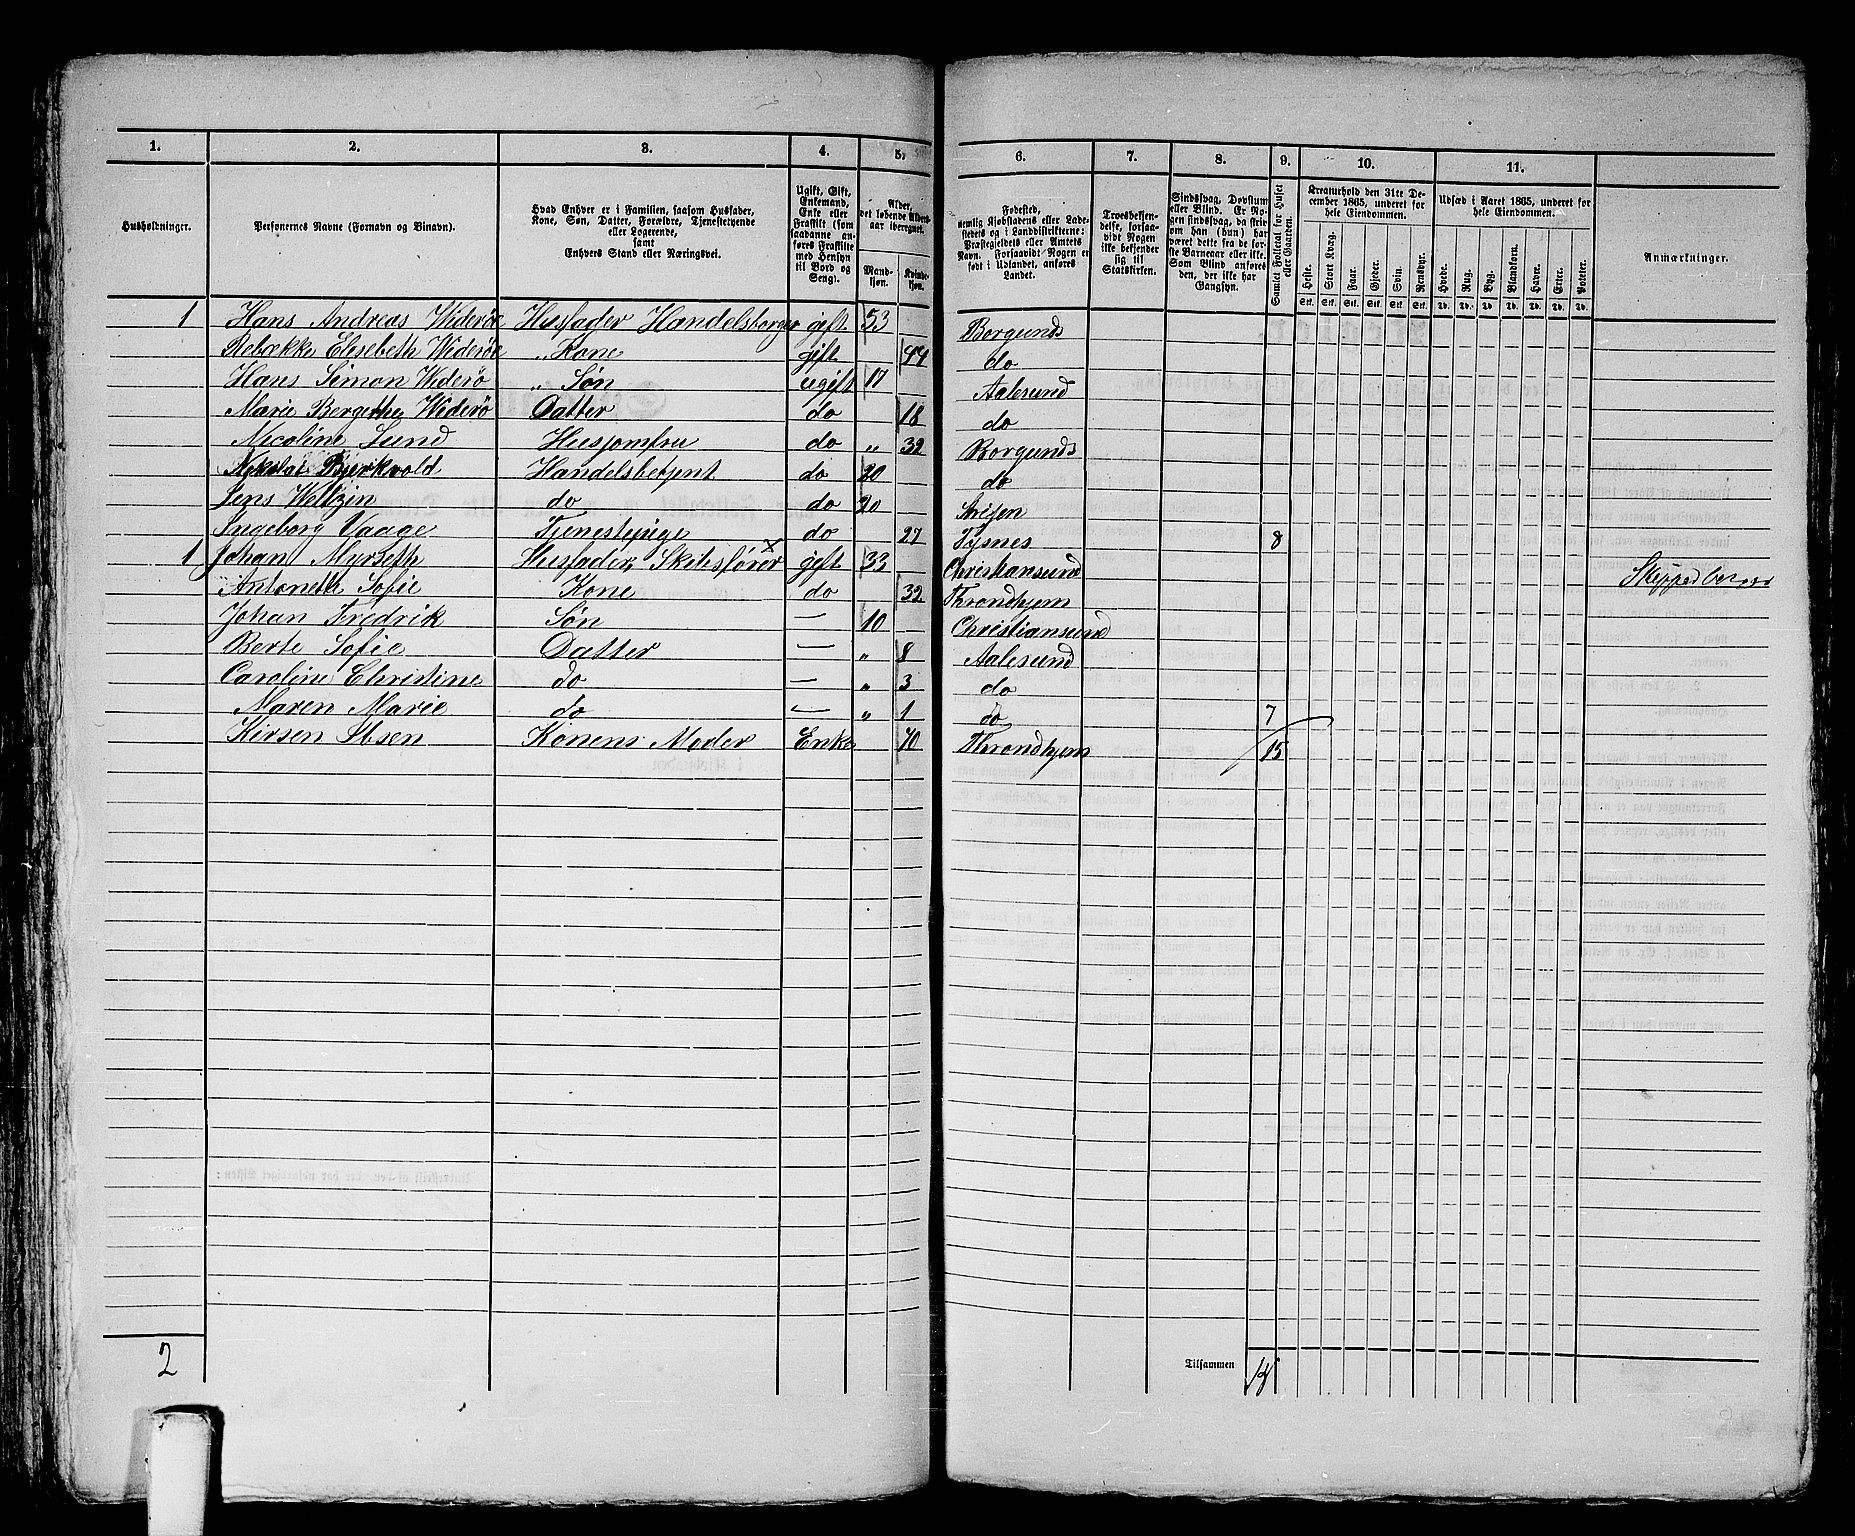 1. 2. 3. 4. 5. 6. 7. 8. 9. 10. 11.
Husholdninger.
Personernes Navne (Fornavn og Binavn).
Hvad Enhver er i Familien, saasom Husfader,
Kone, Søn, Datter, Forældre, Tjenestetyende
eller Logerende,
samt
Enhvers Stand eller Næringsvei.
Ugift, Gift,
Enkemand,
Enke eller
Fraskilt (som
saadanne an-
føres Fraskilte
med Hensyn
til Bord og
Seng).
Alder,
det løbende Alders-
aar iberegnet.
Mand-
kjøn.
Kvinde-
kjøn.
Fødested,
nemlig Kjøbstadens eller Lade-
stedets og i Landdistrikterne:
Præstegjeldets eller Amtets
Navn. (Forsaavidt Nogen er
født i Udlandet, anføres
Landet.
Troesbekjen-
delse, forsaa-
vidt Nogen
ikke bekjender
sig til
Statskirken.
Sindssvag, Døvstum
eller Blind. Er No-
gen sindssvag, da skriv
om han (hun) har
været dette fra de før-
ste Barneaar eller ikke.
Som Blind anføres
den, der ikke har
Gangsyn.
Samlet Folketal for Huset
eller Gaarden.
Kreaturhold den 31te De-
cember 1865, underet for
hele Eiendommen.
Heste. Stort Kvæg. Faar. Gjeder. Svin. Rensdyr.
Stk. Stk. Stk. Stk. Stk. Stk.
Udsæd i Aaret 1865, underet for
hele Eiendommen.
Hvede. Rug. Byg. Blandkorn. Havre. Erter. Poteter.
Td. Td. Td. Td. Td. Td. Td.
Anmærkninger.
1 Hans Andreas Widerøe Husfader Handelsborger gift 53 Borgunds
Rebække Elisebeth Widerøe „ Kone gift 44 do
Hans Simon Widerø „ Søn ugift 17 Aalesund
Marie Bergethe Widerø Datter do 18 do
Nicoline Lund Husjomfru do „ 32 Borgunds
Nikolai Bjerkvold Handelsbetjent do 20 do
Jens Weltzin do do 20
Ingeborg Vaage Tjenestepige do 27 Tysnes 8
1 Johan Myrseth Husfader, Skibsfører gift 33 Christiansund
Antoneth Sofie Kone do 32 Throndhjem
Johan Fredrik Søn — 10 Christiansund
Berte Sofie Datter — „ 8 Aalesund
Caroline Christine do — „ 3 do
Maren Marie do — „ 1 do 7
Kirsen Ibsen Konens Moder Enke 70 Throndhjem 15
2 Tilsammen 15